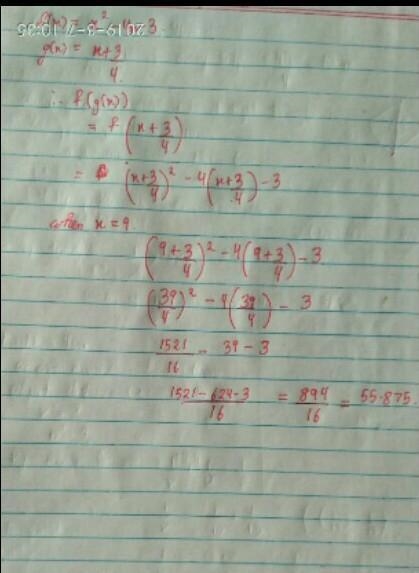 f(x) = x² 3
2019-3-7 10:35
g(x) = x+3/4.
∴ f(g(x))
= f(x+3/4)
= (x+3/4)² - 4(x+3/4) - 3
when x = 9.
(9+3/4)² - 4(9+3/4) - 3
(39/4)² - 4(39/4) - 3
1521/16 - 39 - 3
1521-624-3/16 = 894/16 = 55.875.